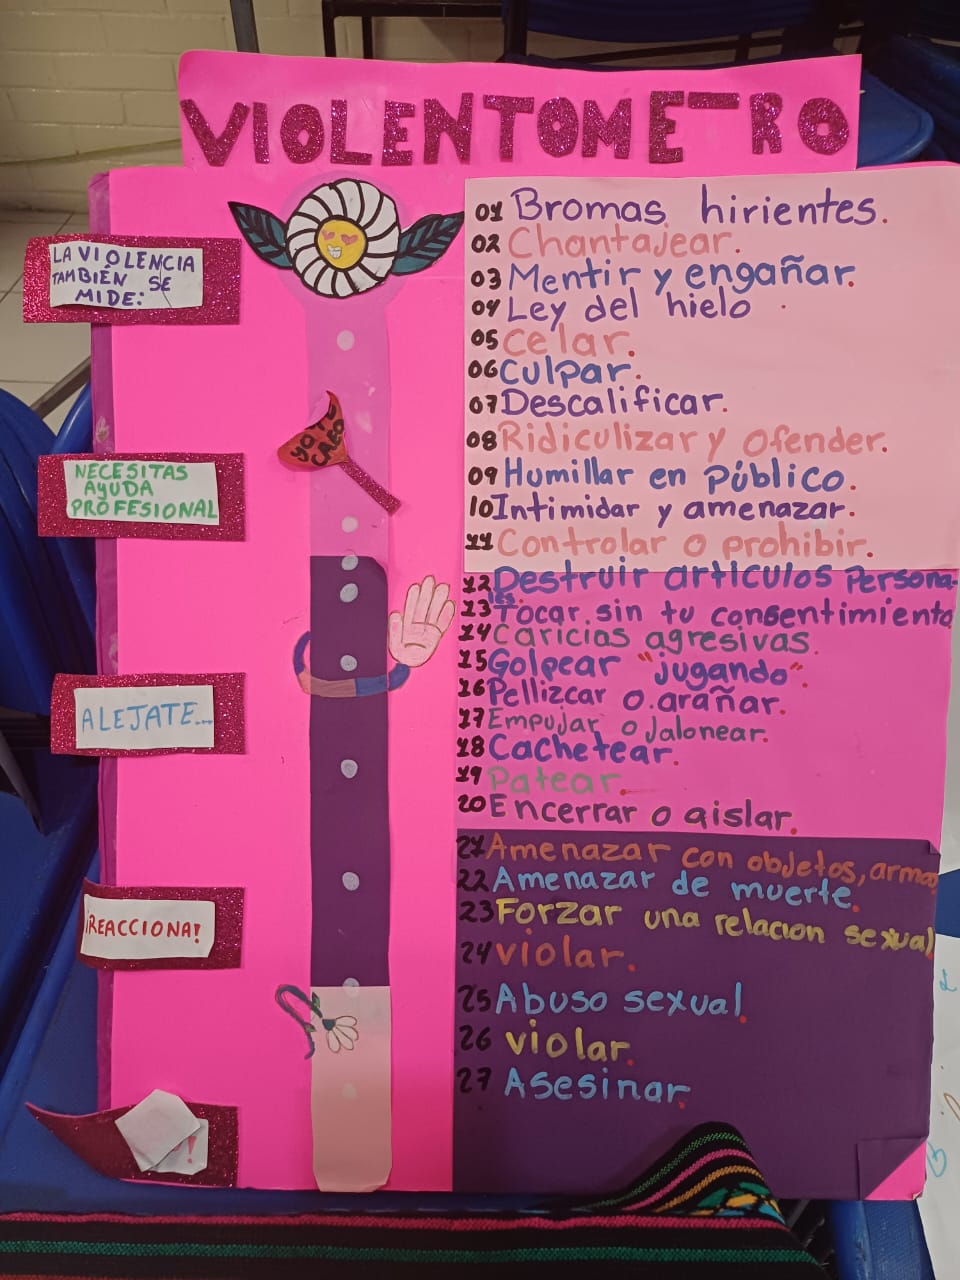 VIOLENTOMETRO
LA VIOLENCIA
TAMBIÉN SE
MIDE:
NECESITAS
AYUDA
PROFESIONAL
ALEJATE...
¡REACCIONA!
!
YO TE
CREO
01 Bromas hirientes.
02 Chantajear.
03 Mentir y engañar.
04 Ley del hielo
05 Celar.
06 Culpar.
07 Descalificar.
08 Ridiculizar y ofender.
09 Humillar en Público.
10 Intimidar y amenazar.
11 Controlar o prohibir.
12 Destruir articulos Persona-
les.
13 Tocar sin tu consentimiento
14 Caricias agresivas.
15 Golpear "jugando".
16 Pellizcar o arañar.
17 Empujar o Jalonear.
18 Cachetear.
19 Patear.
20 Encerrar o aislar.
21 Amenazar con objetos, armas
22 Amenazar de muerte.
23 Forzar una relacion sexual
24 violar.
25 Abuso sexual.
26 violar.
27 Asesinar.